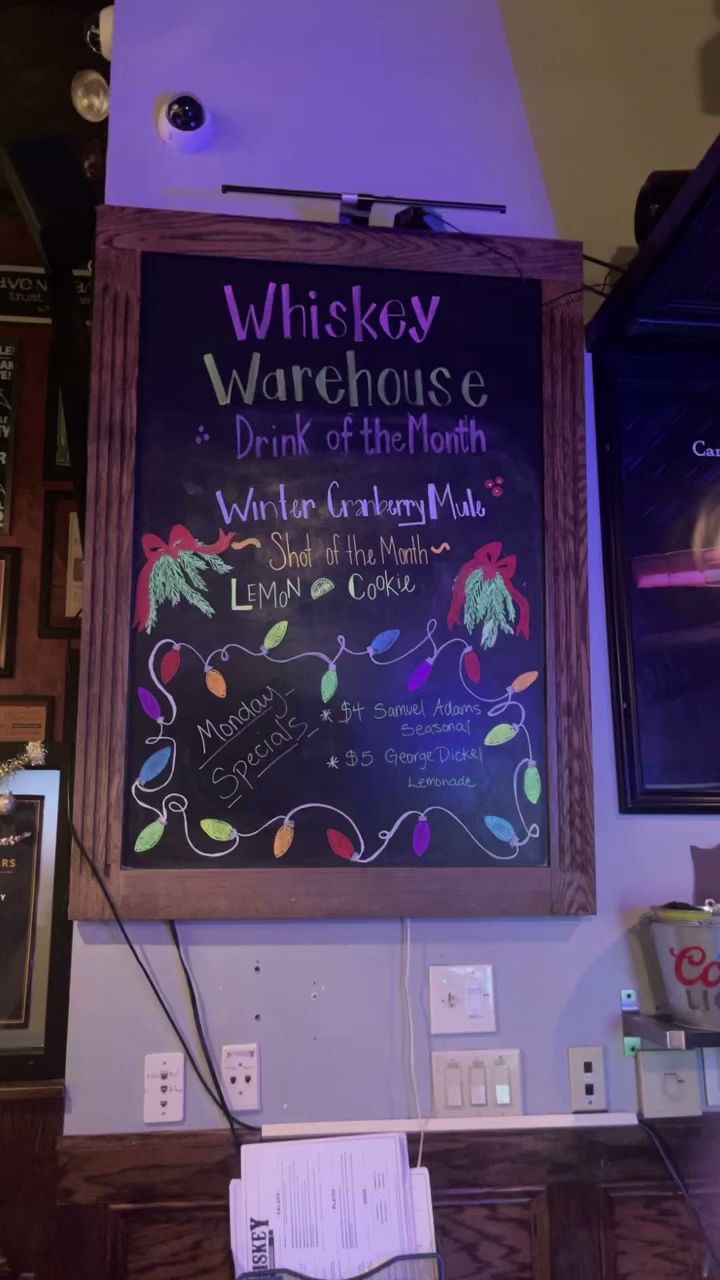 Whiskey
Warehouse
Drink of the Month
Winter Cranberry Mule
~ Shot of the Month ~
LEMON COOKIE
Monday
Specials
* $4 Samuel Adams
Seasonal
* $5 George Dickel
Lemonade
trust
Car
RS
Y
Co
LIG
ISKEY